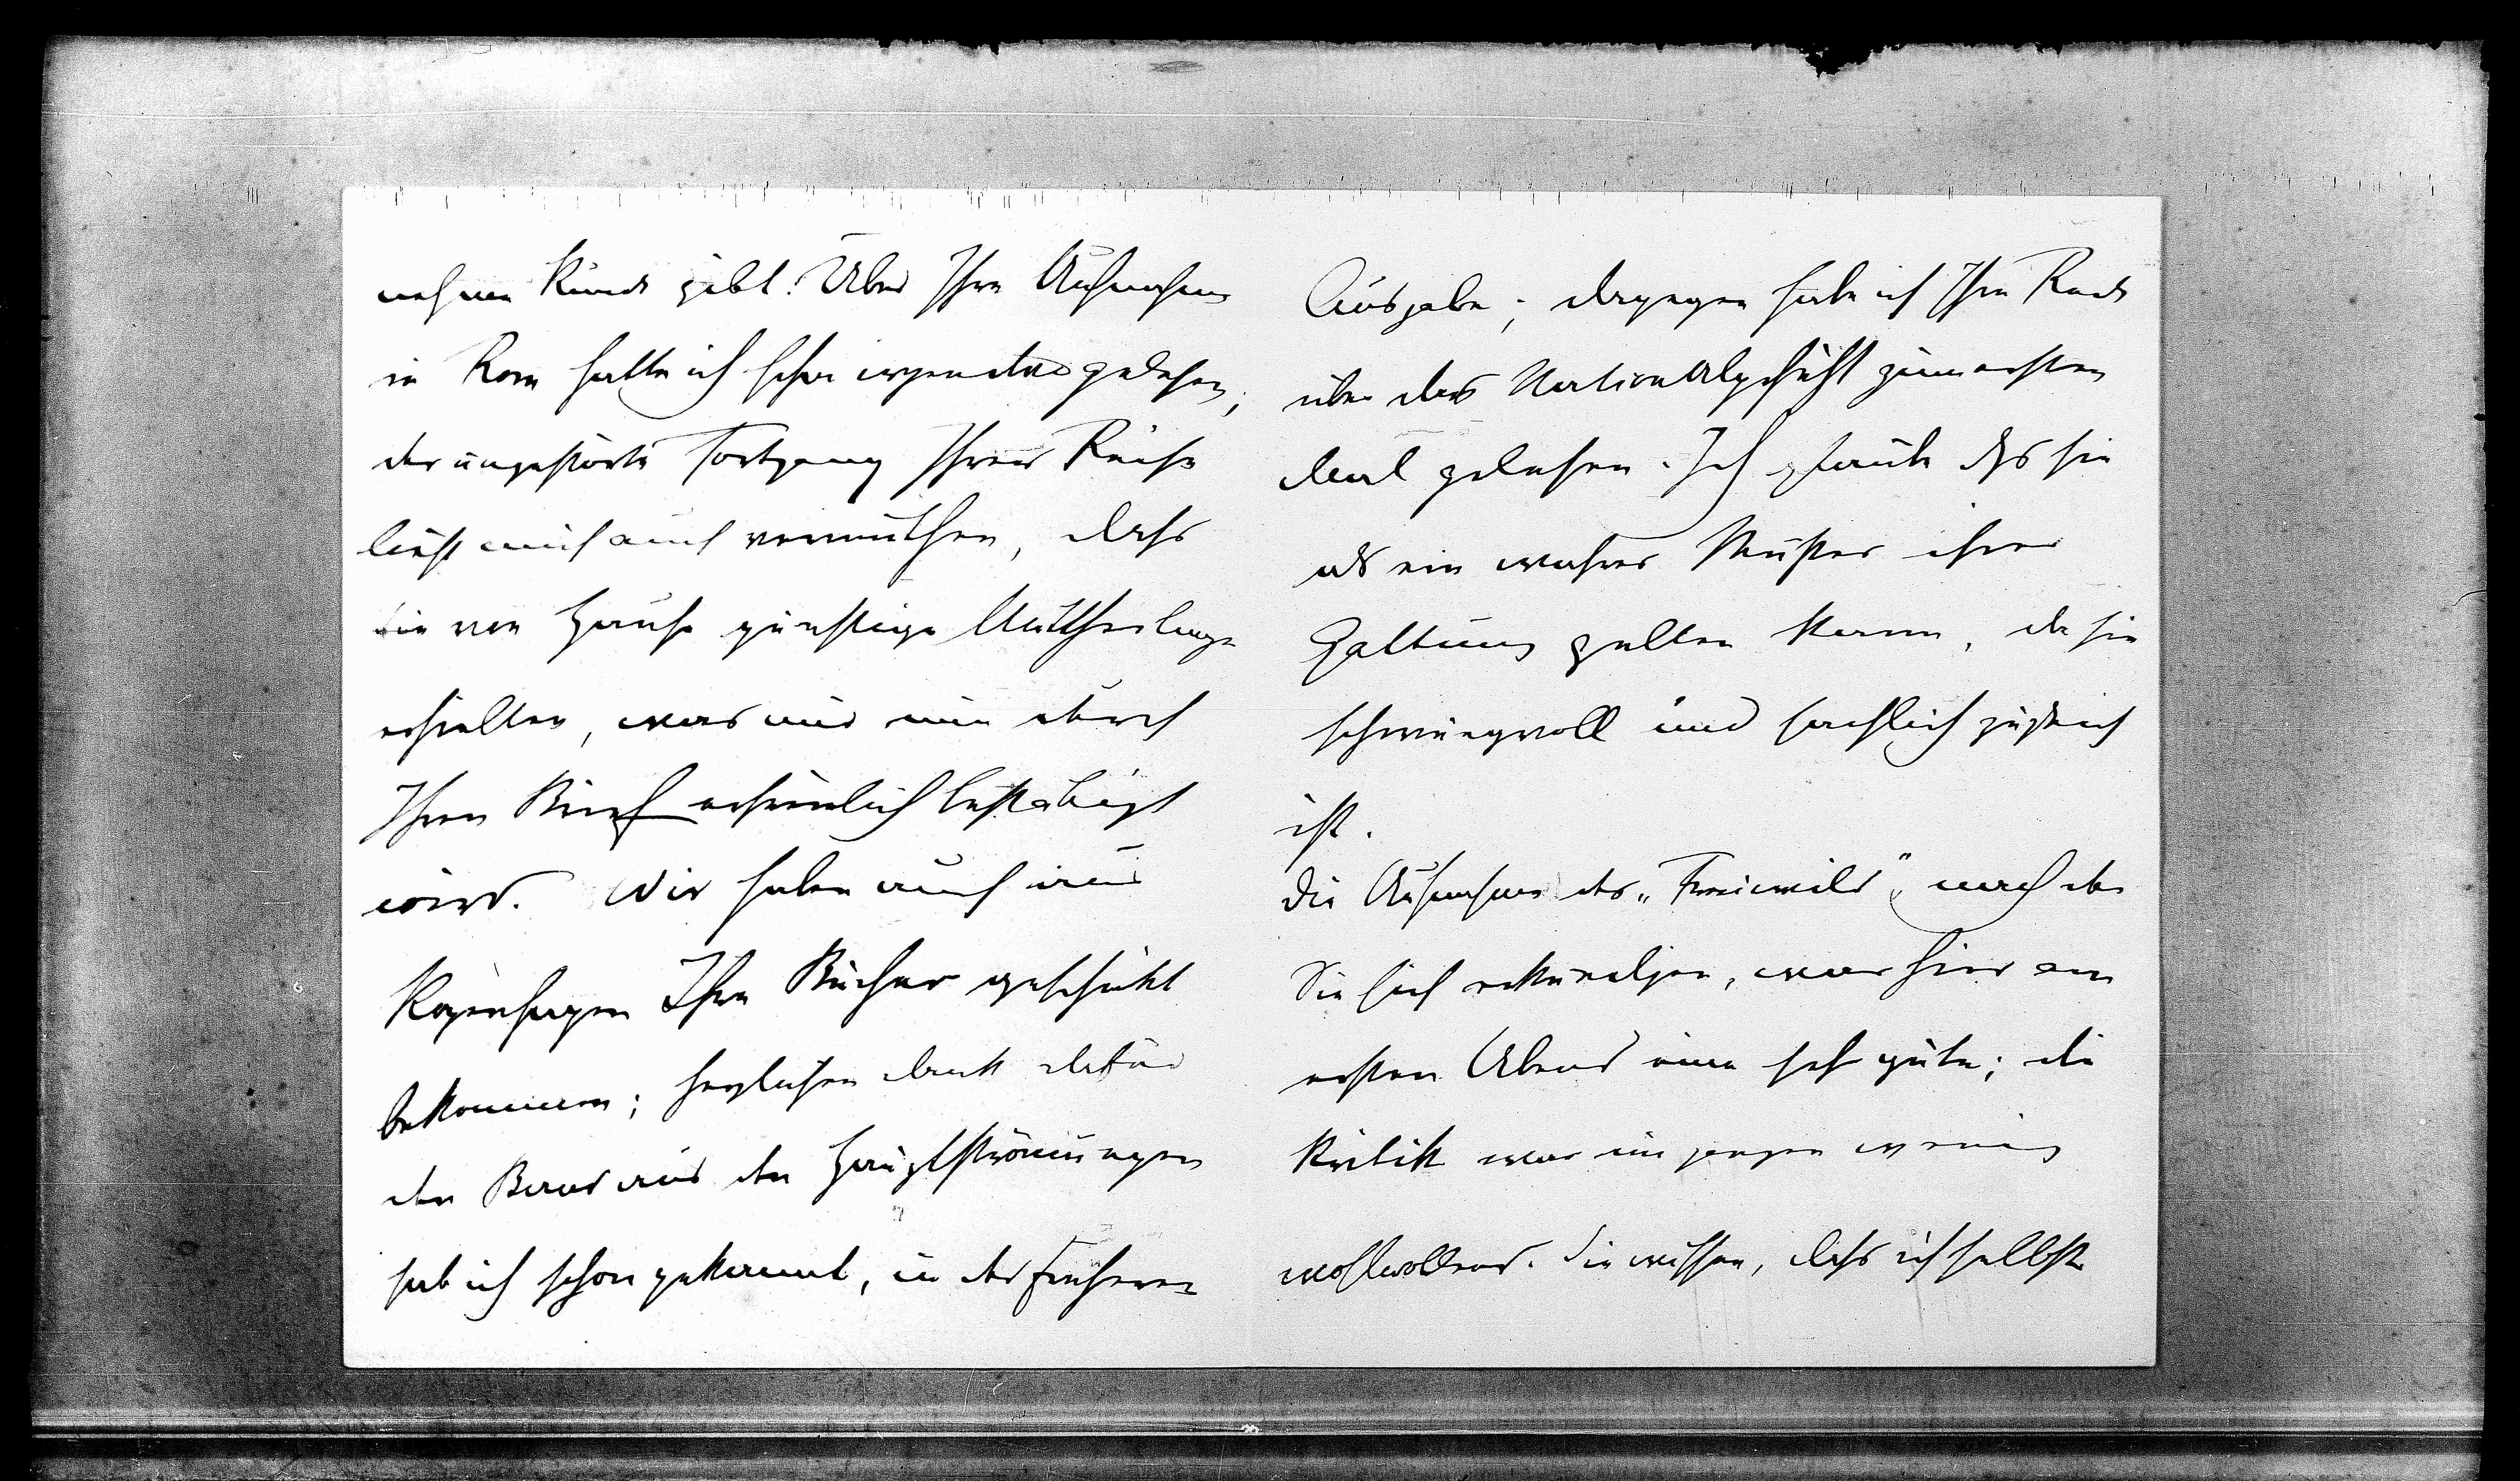 nehmen Kunde gibt. Über Ihre Aufnahme
in Rom hatte ich schon irgendwo gelesen;
der ungestörte Fortgang Ihrer Reise
ließ mich auch vermuthen, dass
Sie von Hause günstige Mittheilunge
erhielten, was mir nun durch
Ihren Brief erfreulich bestätigt
wird. Wir haben auch aus
Kopenhagen Ihre Bücher geschickt
bekommen; herzlichen Dank dafür
den Band aus den Hauptströmungen
hab ich schon gekannt, in der früheren
Ausgabe; dagegen habe ich Ihre Rede
über das Nationalgefühl zum ersten
Mal gelesen. Ich glaube dss sie
als ein wahres Muster ihrer
Gattung gelten kann, da sie
schwungvoll und sachlich zugleich
ist.
Die Aufnahme des „Freiwild“, nach der
Sie sich erkundigen, war hier am
ersten Abend eine sehr gute; die
Kritik war im ganzen wenig
wohlwollend. Sie wissen, dass ich selbst